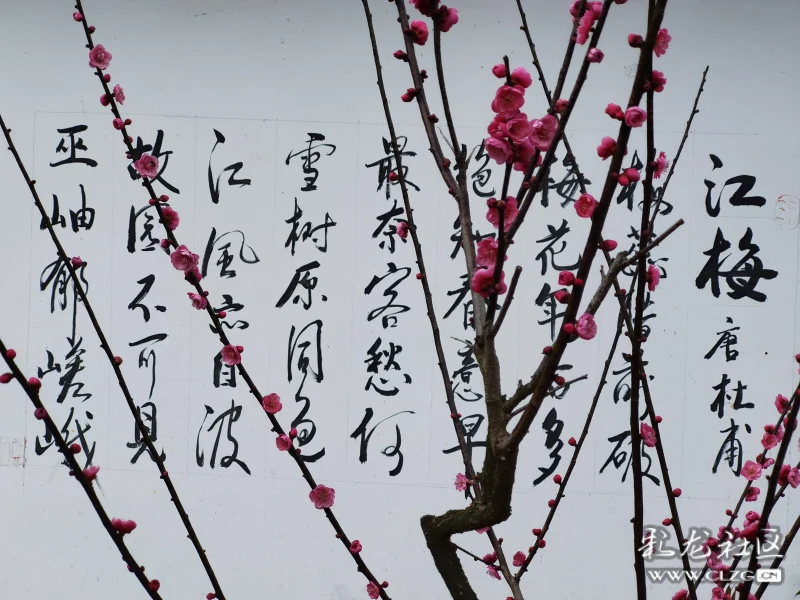 江梅 唐 杜甫
梅蕊腊前破
梅花年后多
绝知春意早
最奈客愁何
雪树原同色
江風亦自波
故園不可見
巫岫郁嵯峨
彩龙社区
www.CLZG.CN